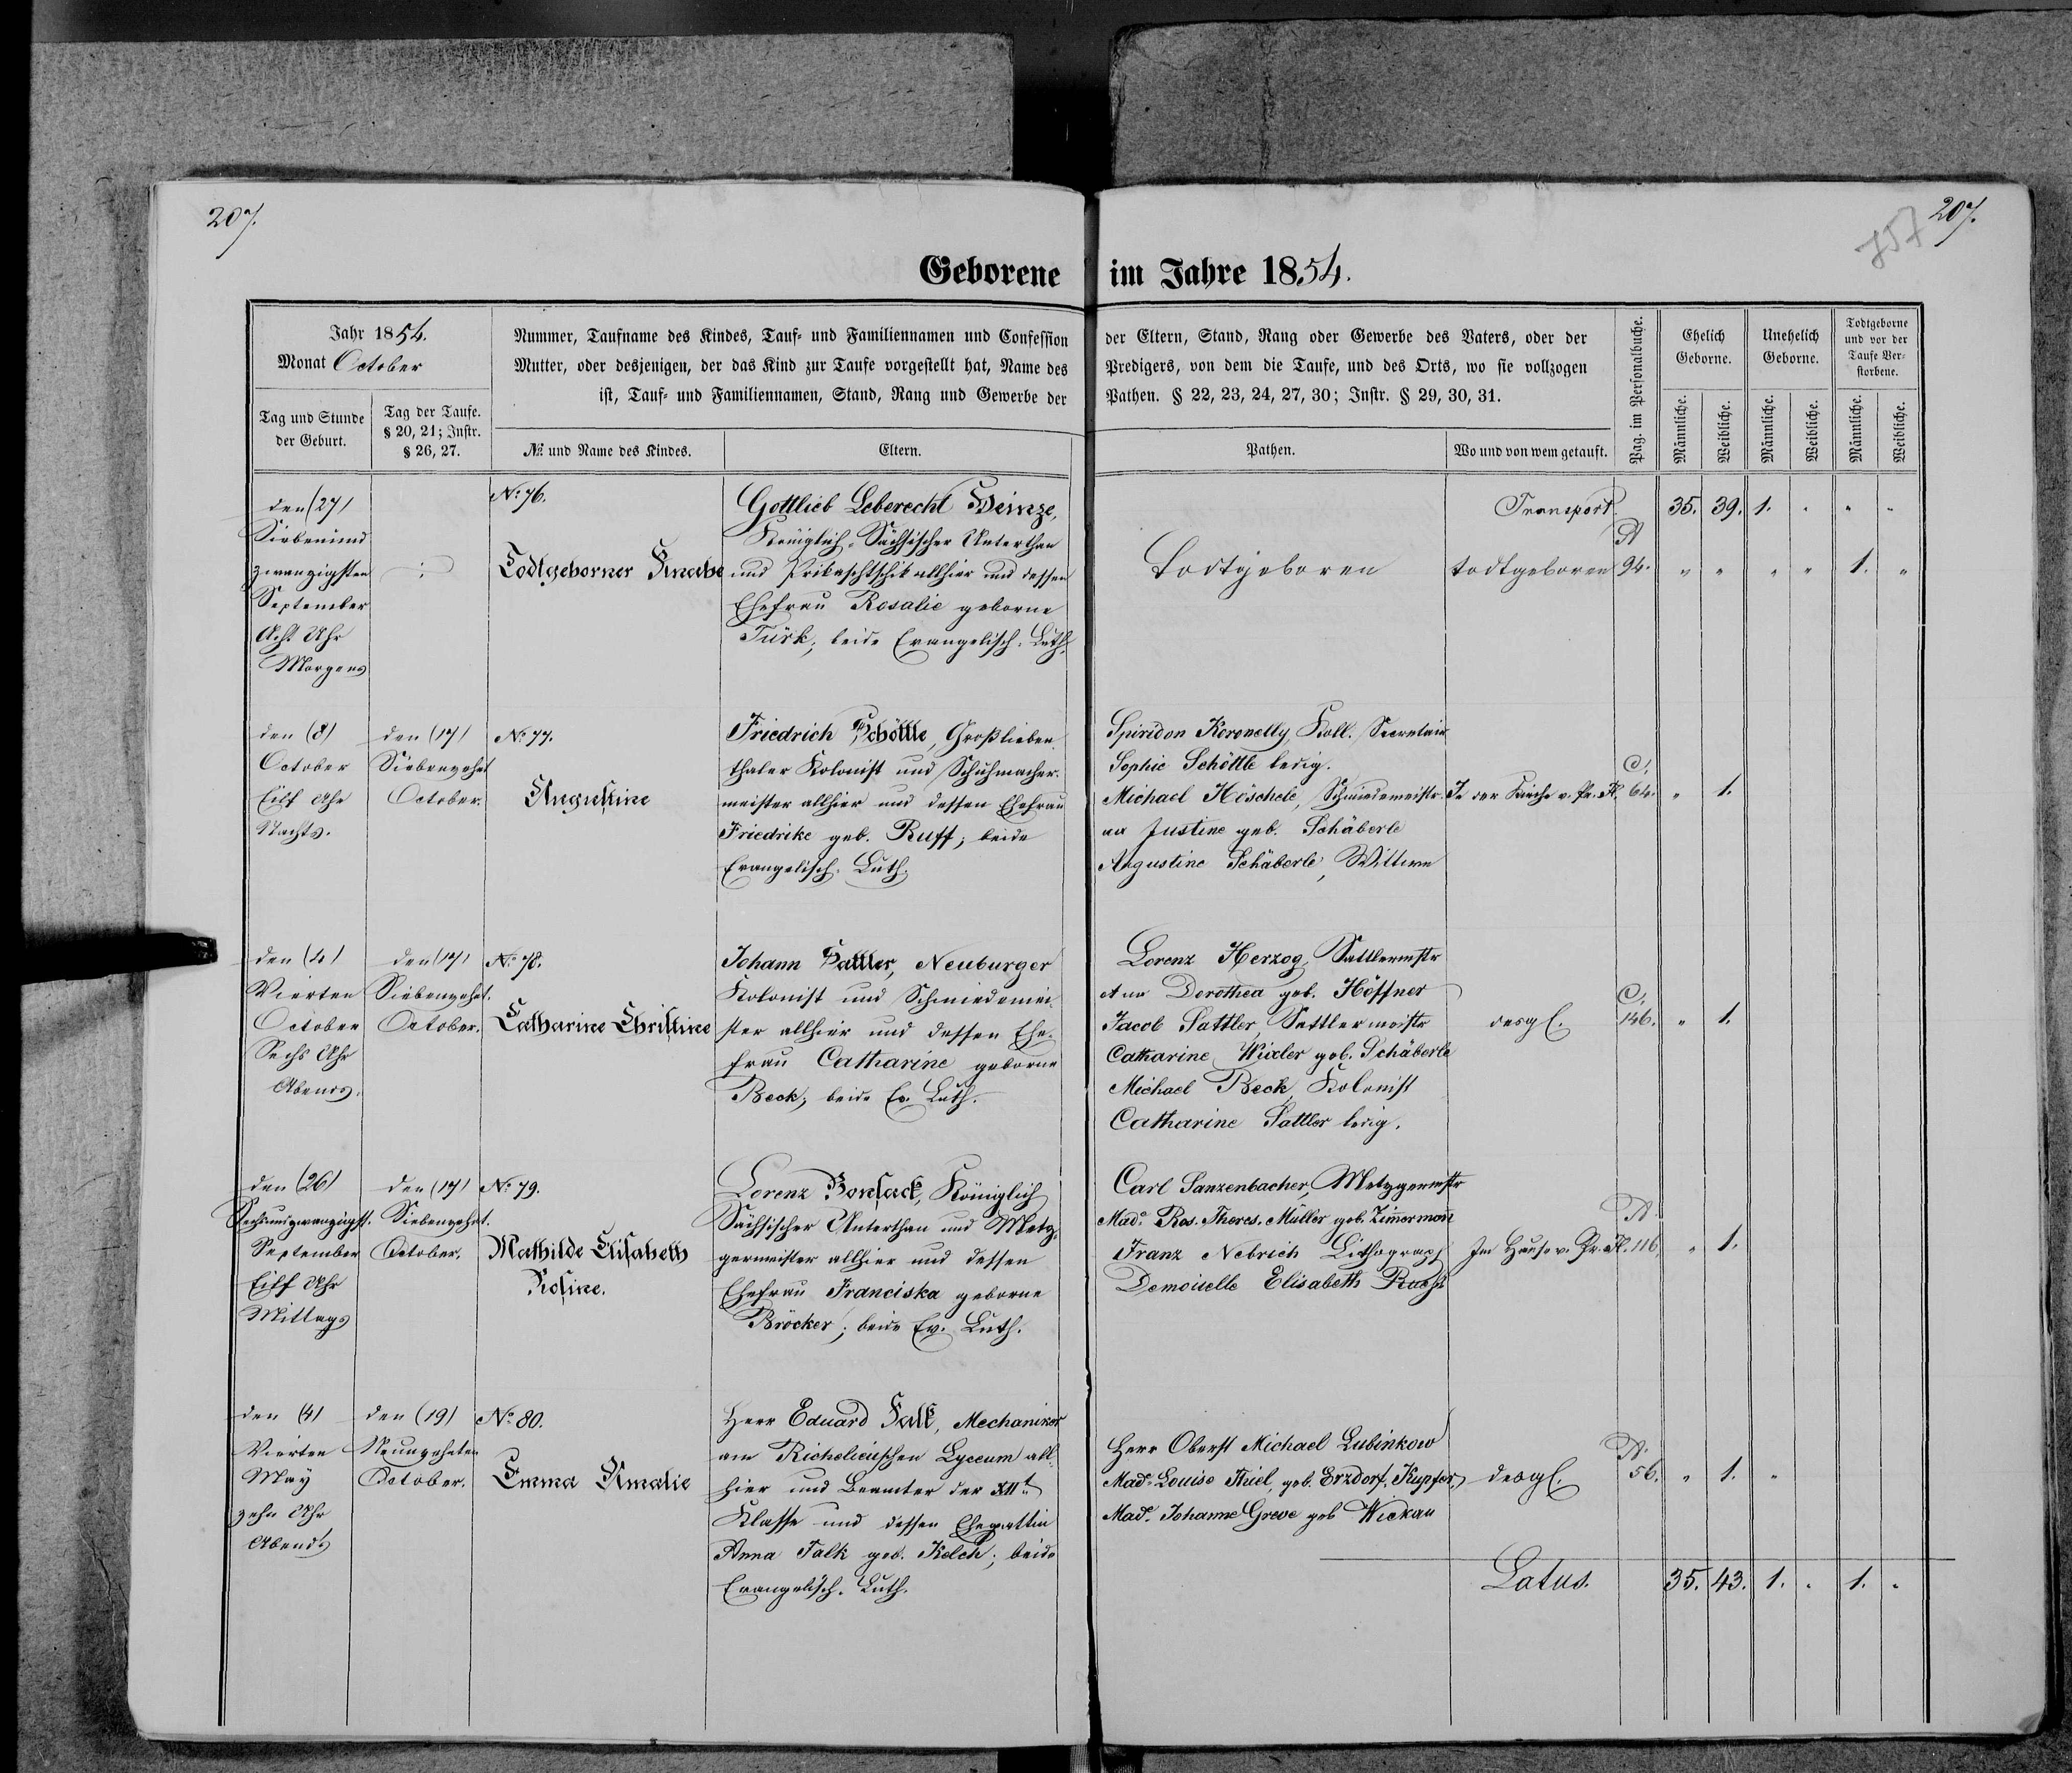 207.
207.
757
Geborene im Jahre 1854.
Jahr 1854.
Monat October
Tag und Stunde
der Geburt.
Tag der Taufe.
§ 20, 21; Instr.
§ 26, 27.
Nummer, Taufname des Kindes, Tauf- und Familiennamen und Confession der Eltern, Stand, Rang oder Gewerbe des Vaters, oder der
Mutter, oder desjenigen, der das Kind zur Taufe vorgestellt hat, Name des Predigers, von dem die Taufe, und des Orts, wo sie vollzogen
ist, Tauf- und Familiennamen, Stand, Rang und Gewerbe der Pathen. § 22, 23, 24, 27, 30; Instr. § 29, 30, 31.
№ und Name des Kindes.
Eltern.
Pathen.
Wo und von wem getauft.
Pag. im Personalbuche.
Ehelich
Geborne.
Unehelich
Geborne.
Todtgeborne
und vor der
Taufe Ver-
storbene.
Männliche.
Weibliche.
Männliche.
Weibliche.
Männliche.
Weibliche.
Transport 35. 39. 1. " " "
den (27)
Siebenund
zwanzigsten
September
Acht Uhr
Morgens
No. 76.
Todtgeborner Knabe
Gottlieb Leberecht Heinze,
Königlich-Sächsischer Unterthan
und Prikaschtschik allhier und dessen
Ehefrau Rosalie geborne
Türk; beide Evangelisch-Luth.
Todtgeboren
todtgeboren
A
94. " " " " 1. "
den (8)
October
Eilf Uhr
Nachts.
den (17)
Siebenzehnt
October.
No. 77.
Augustine
Friedrich Schöttle, Großlieben
thaler Kolonist und Schuhmacher-
meister allhier und dessen Ehefrau
Friedrike geb. Ruff; beide
Evangelisch-Luth.
Spiridon Koronelly, Koll. Secretair
Sophie Schöttle ledig.
Michael Höschele, Schmiedemeistr.
ux Justine geb. Schäberle
Augustine Schäberle, Wittwe
In der Kirche v. Pr. Fl.
C.
64. " 1.
den (4)
Vierten
October
Sechs Uhr
Abends.
den (17)
Siebenzehnt.
October.
No. 78.
Catharine Christine
Johann Sattler, Neuburger
Kolonist und Schmiedemei-
ster allhier und dessen Ehe-
frau Catharine geborne
Beck; beide Ev. Luth.
Lorenz Herzog, Sattlermstr
ux Dorothea geb. Höffner
Jacob Sattler, Sattlermeistr
Catharine Wixler geb. Schäberle
Michael Beck, Kolonist
Catharine Sattler ledig.
desgl.
C.
146. " 1.
den (26)
Sechsundzwanzigst.
September
Eilf Uhr
Mittags
den (17)
Siebenzehnt.
October.
No. 79.
Mathilde Elisabeth
Rosine.
Lorenz Bonsack, Königlich
Sächsischer Unterthan und Metz-
germeister allhier und dessen
Ehefrau Franciska geborne
Bröcker; beide Ev. Luth.
Carl Sanzenbacher, Metzgermstr
Mad. Ros. Theres. Müller geb. Zimmermann
Franz Nebrich Lithograph
Demoiselle Elisabeth
Im Hause v. Pr. Fl.
A
116. " 1.
den (4)
Vierten
May
zehn Uhr
Abends
den (19)
Neunzehnten
October.
No. 80.
Emma Amalie
Herr Eduard Falk, Mechaniker
am Richelieuschen Lyceum all-
hier und Beamter der XIIt.
Klasse und dessen Ehegattin
Anna Falk geb. Kelch; beide
Evangelisch-Luth.
Herr Oberst Michael Lubinkow
Mad. Louise Thiel, geb. Erzdorf-Kupfer,
Mad. Johanne Greve geb Wickau
desgl.
A.
56. " 1. "
Latus. 35. 43. 1. " 1. "